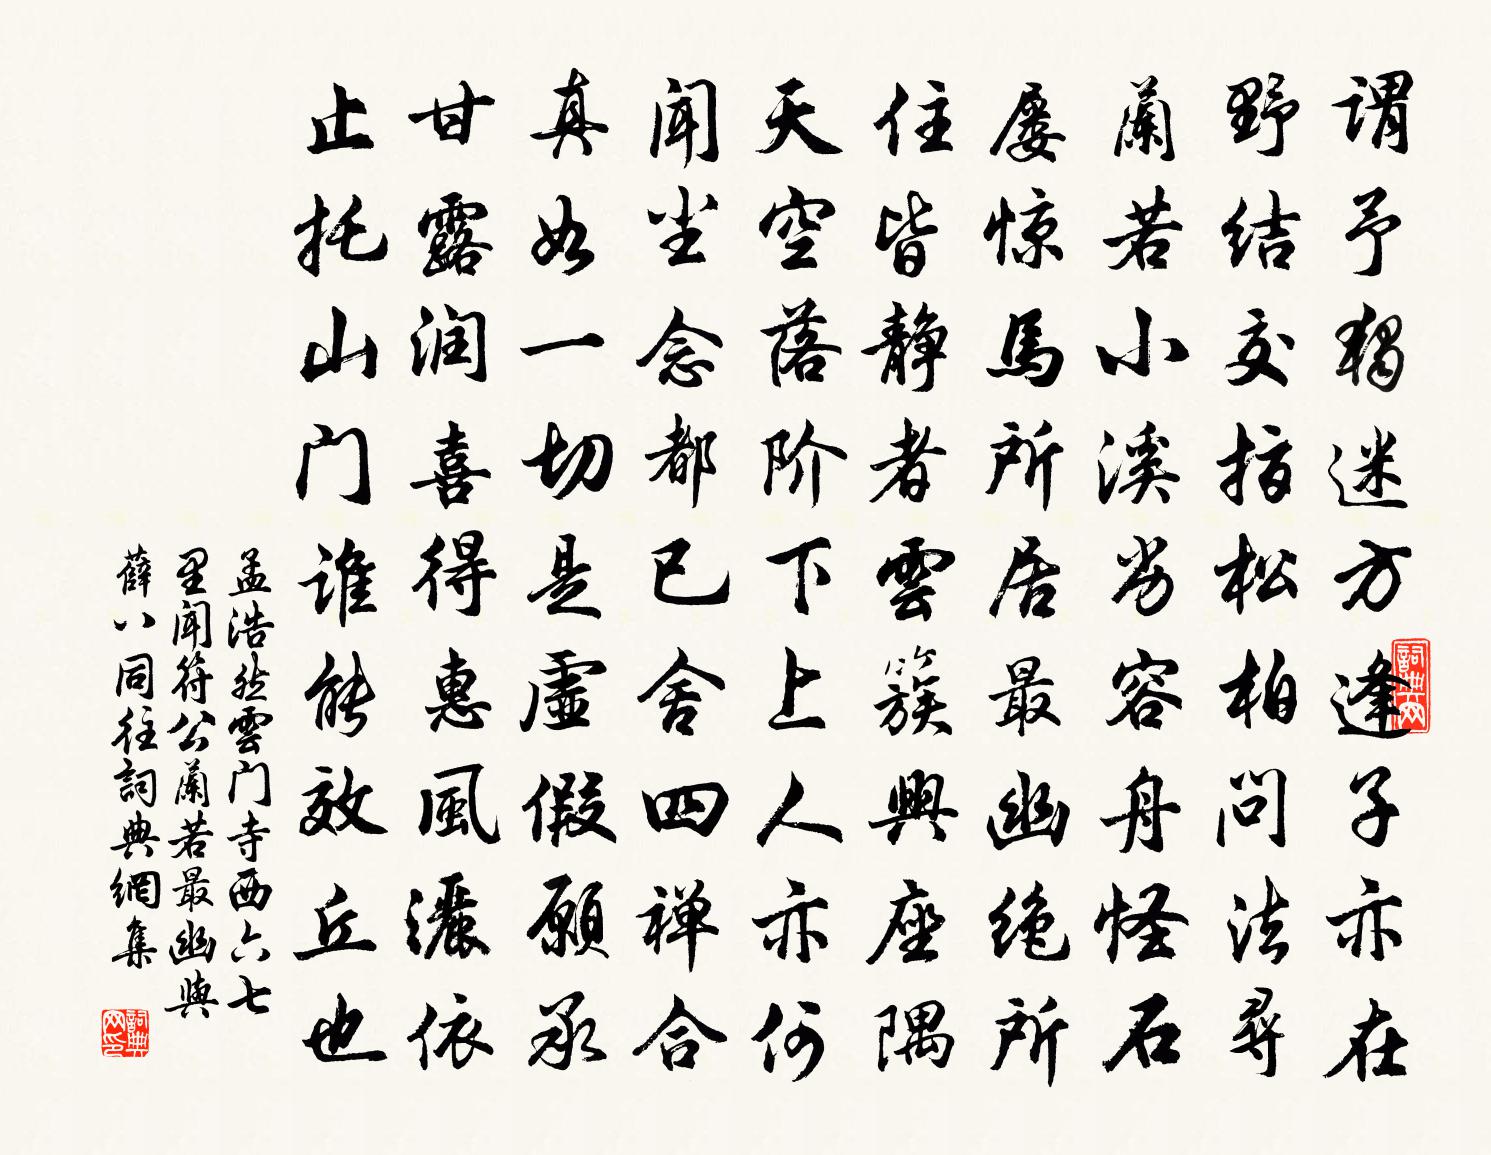 謂予獨迷方逢子亦在
野结交指松柏问法尋
蘭若小溪劣容舟怪石
屡惊馬所居最幽绝所
住皆静者雲簇興座隅
天空落阶下上人亦何
闻尘念都已舍四禅合
真如一切是虚假願承
甘露润喜得惠風灑依
止托山门誰能效丘也
孟浩然雲门寺西六七
里闻符公蘭若最幽與
薛八同往詞典網集
詞典网
詞典网印